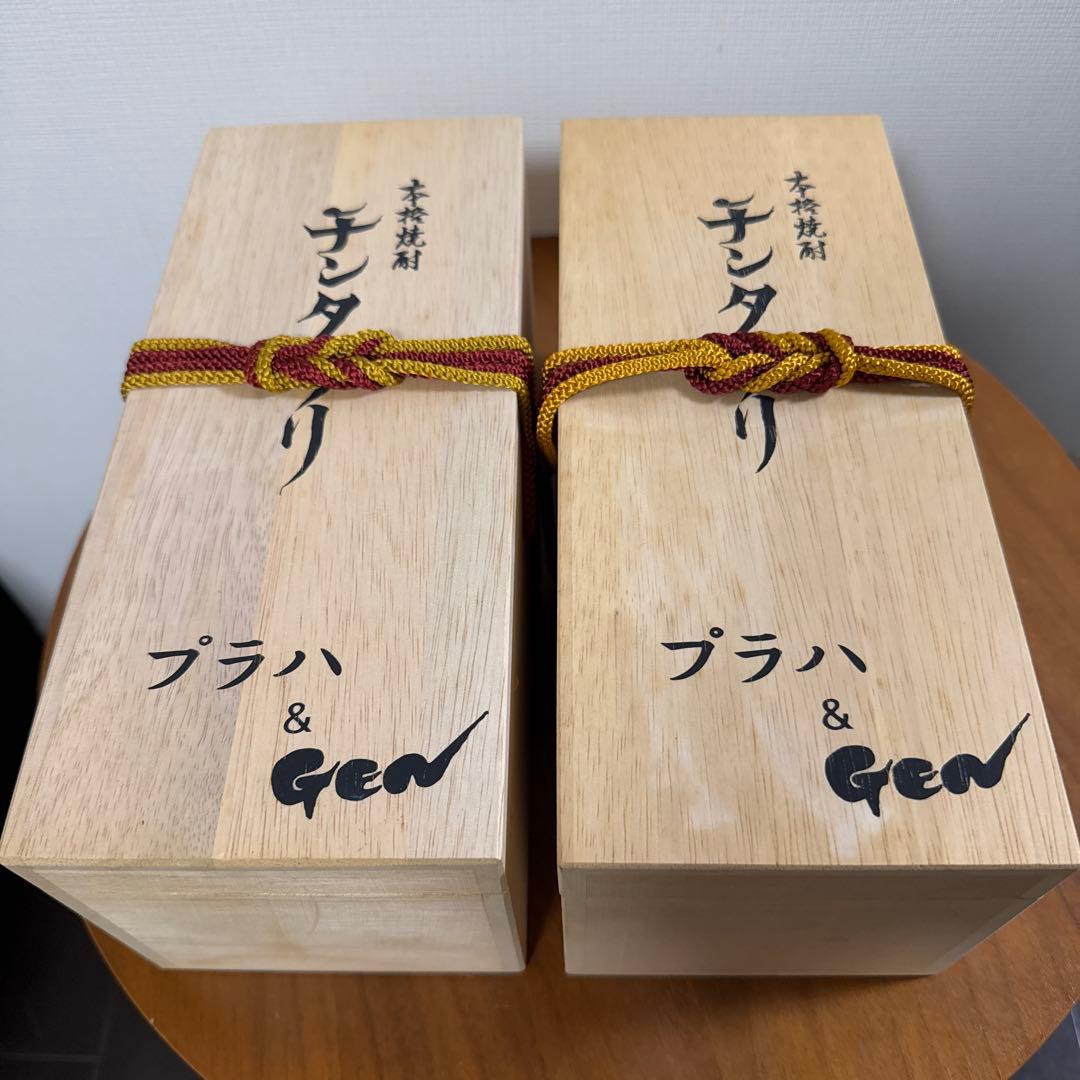 本格焼酎
チンタリ
プラハ
&
GEN
本格焼酎
チンタリ
プラハ
&
GEN